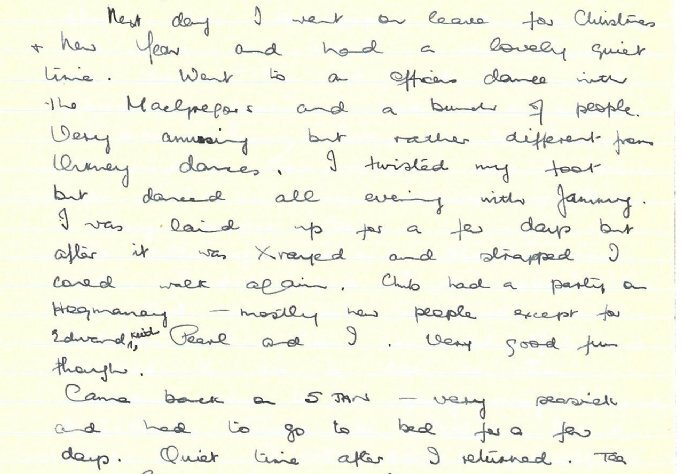 Next day I went on leave for Christmas
+ New Year and had a lovely quiet
time. Went to a officers dance with
the MacGregors and a bunch of people.
Very amusing but rather different from
Orkney dances. I twisted my foot
but danced all evening with Jammy.
I was laid up for a few days but
after it was Xrayed and strapped I
could walk again. Club had a party on
Hogmanay – mostly new people except for
Edward, Keith Pearl and I. Very good fun
though.
Came back on 5 JAN – very seasick
and had to go to bed for a few
days. Quiet time after I returned. Too